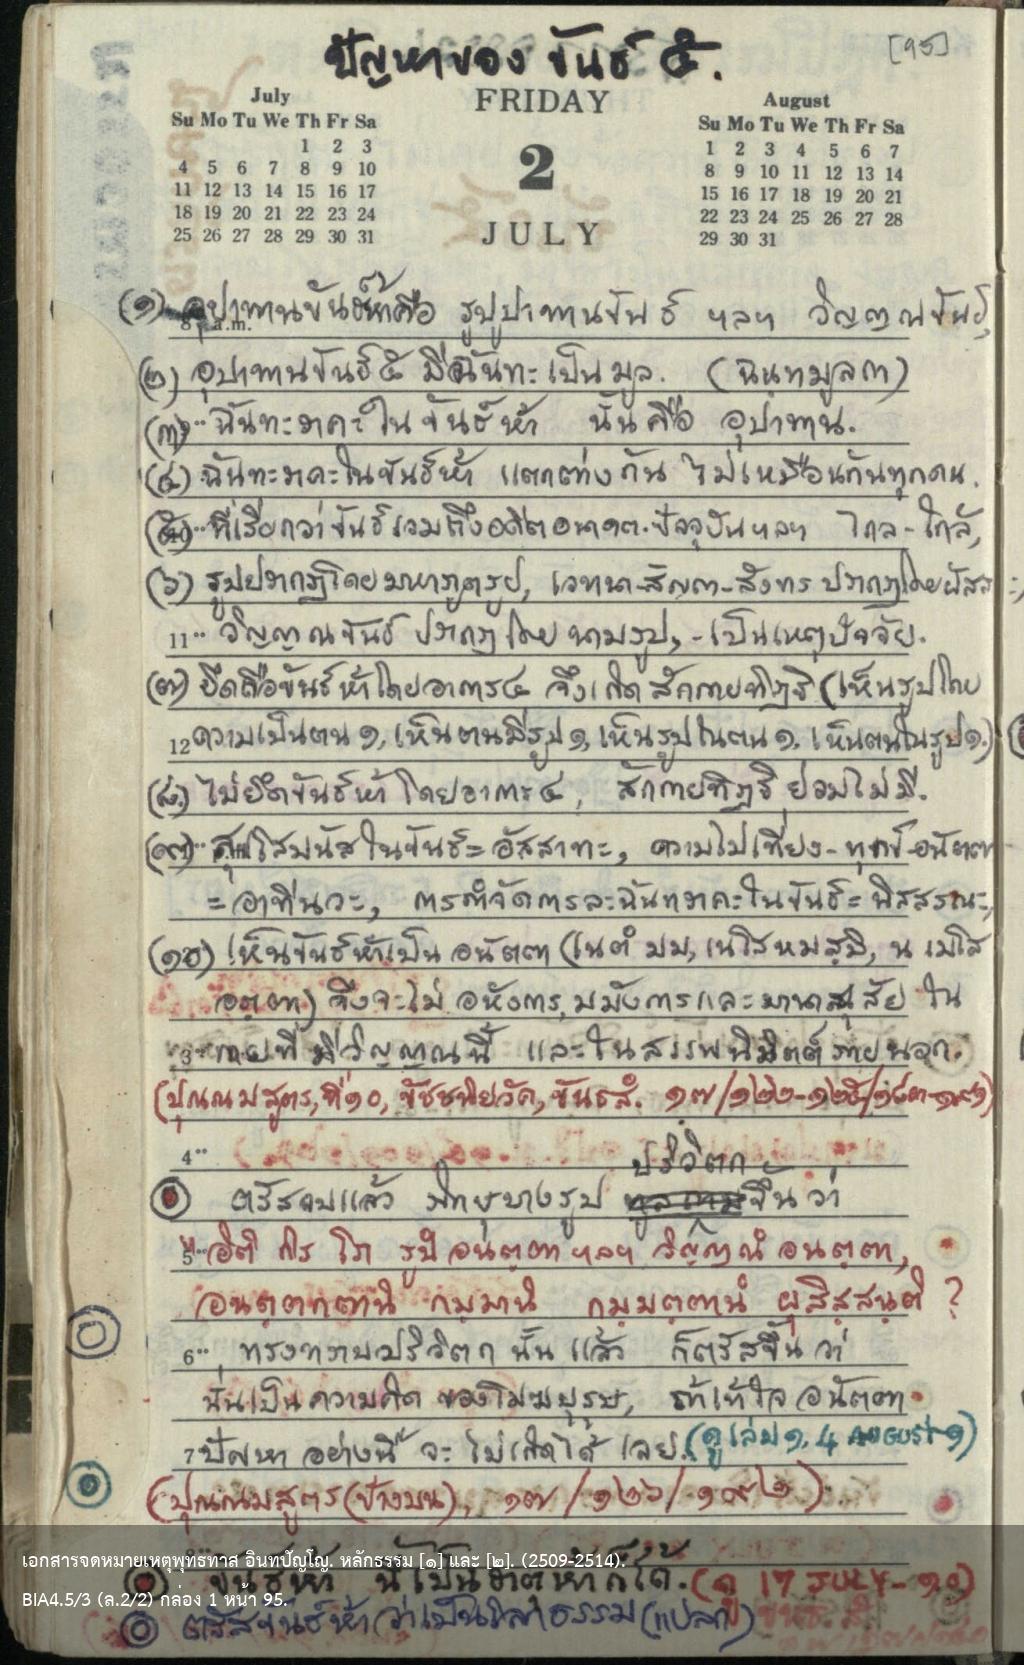 ปัญหาของ ขันธ์ ๕.
[95]
July
Su Mo Tu We Th Fr Sa
1 2 3
4 5 6 7 8 9 10
11 12 13 14 15 16 17
18 19 20 21 22 23 24
25 26 27 28 29 30 31
FRIDAY
2
JULY
August
Su Mo Tu We Th Fr Sa
1 2 3 4 5 6 7
8 9 10 11 12 13 14
15 16 17 18 19 20 21
22 23 24 25 26 27 28
29 30 31
(๑) อุปาทานขันธ์ห้าคือ รูปูปาทานขันธ์ ฯลฯ วิญญาณขันธ์,
(๒) อุปาทานขันธ์ ๕ มีฉันทะเป็นมูล. (ฉนฺทมูลกา)
(๓) ฉันทะราคะในขันธ์ห้า นั้นคือ อุปาทาน.
(๔) ฉันทะราคะในขันธ์ห้า แตกต่างกัน ไม่เหมือนกันทุกคน.
(๕) ที่เรียกว่าขันธ์รวมถึงอดีตอนาคต-ปัจจุบันฯลฯ ไกล-ใกล้,
(๖) รูปปรากฏโดยมหาภูตรูป, เวทนา-สัญญา-สังขาร ปรากฏโดยผัสสะ,
11 วิญญาณขันธ์ ปรากฏโดย นามรูป, - เป็นเหตุปัจจัย.
(๗) ยึดถือขันธ์ห้าโดยอาการ ๔ จึงเกิดสักกายทิฏฐิ (เห็นรูปโดย
12 ความเป็นตน ๑, เห็นตนมีรูป ๑, เห็นรูปในตน ๑. เห็นตนในรูป ๑.)
(๘) ไม่ยึดขันธ์ห้าโดยอาการ ๔, สักกายทิฏฐิ ย่อมไม่มี.
(๙) สุขโสมนัสในขันธ์ = อัสสาทะ, ความไม่เที่ยง-ทุกข์-อนัตตา
= อาทีนวะ, การกำจัดการละฉันทราคะในขันธ์ = นิสสรณะ,
(๑๐) เห็นขันธ์ห้าเป็นอนัตตา (เนตํ มม, เนโสหมสฺมิ, น เมโส
อตฺตา) จึงจะไม่ อหังการ, มมังการและมานานุสัย ใน
3 กายที่มีวิญญาณนี้ และในสรรพนิมิตต์ภายนอก.
(ปุณณมสูตร, ที่ ๑๐, ขัชชนิยวัค, ขันธสํ. ๑๗/๑๒๒-๑๒๕/๑๘๓-๑๙๑)
4
ปริวิตก
ตรัสจบแล้ว ภิกษุบางรูป ขึ้นว่า
5 อิติ กิร โภ รูปํ อนตฺตา ฯลฯ วิญฺญาณํ อนตฺตา,
อนตฺตกตานิ กมฺมานิ กมฺมตฺตานํ ผุสิสฺสนฺติ ?
6 ทรงทราบปริวิตกนั้นแล้ว ก็ตรัสขึ้นว่า
นั่นเป็นความคิดของโมฆบุรุษ, ถ้าเข้าใจ อนัตตา
7 ปัญหาอย่างนี้ จะไม่เกิดได้เลย. (ดูเล่ม ๑, 4 AUGUST-๑)
(ปุณณมสูตร (ข้างบน), ๑๗/๑๒๖/๑๙๒)
ขันธ์ห้า นี้เป็น ก็ได้. (ดู 17 JULY-๑๐)
ตรัสขันธ์ห้าว่าเป็นโลกธรรม (แปลก)
เอกสารจดหมายเหตุพุทธทาส อินทปัญโญ. หลักธรรม [๑] และ [๒]. (2509-2514).
BIA4.5/3 (ล.2/2) กล่อง 1 หน้า 95.